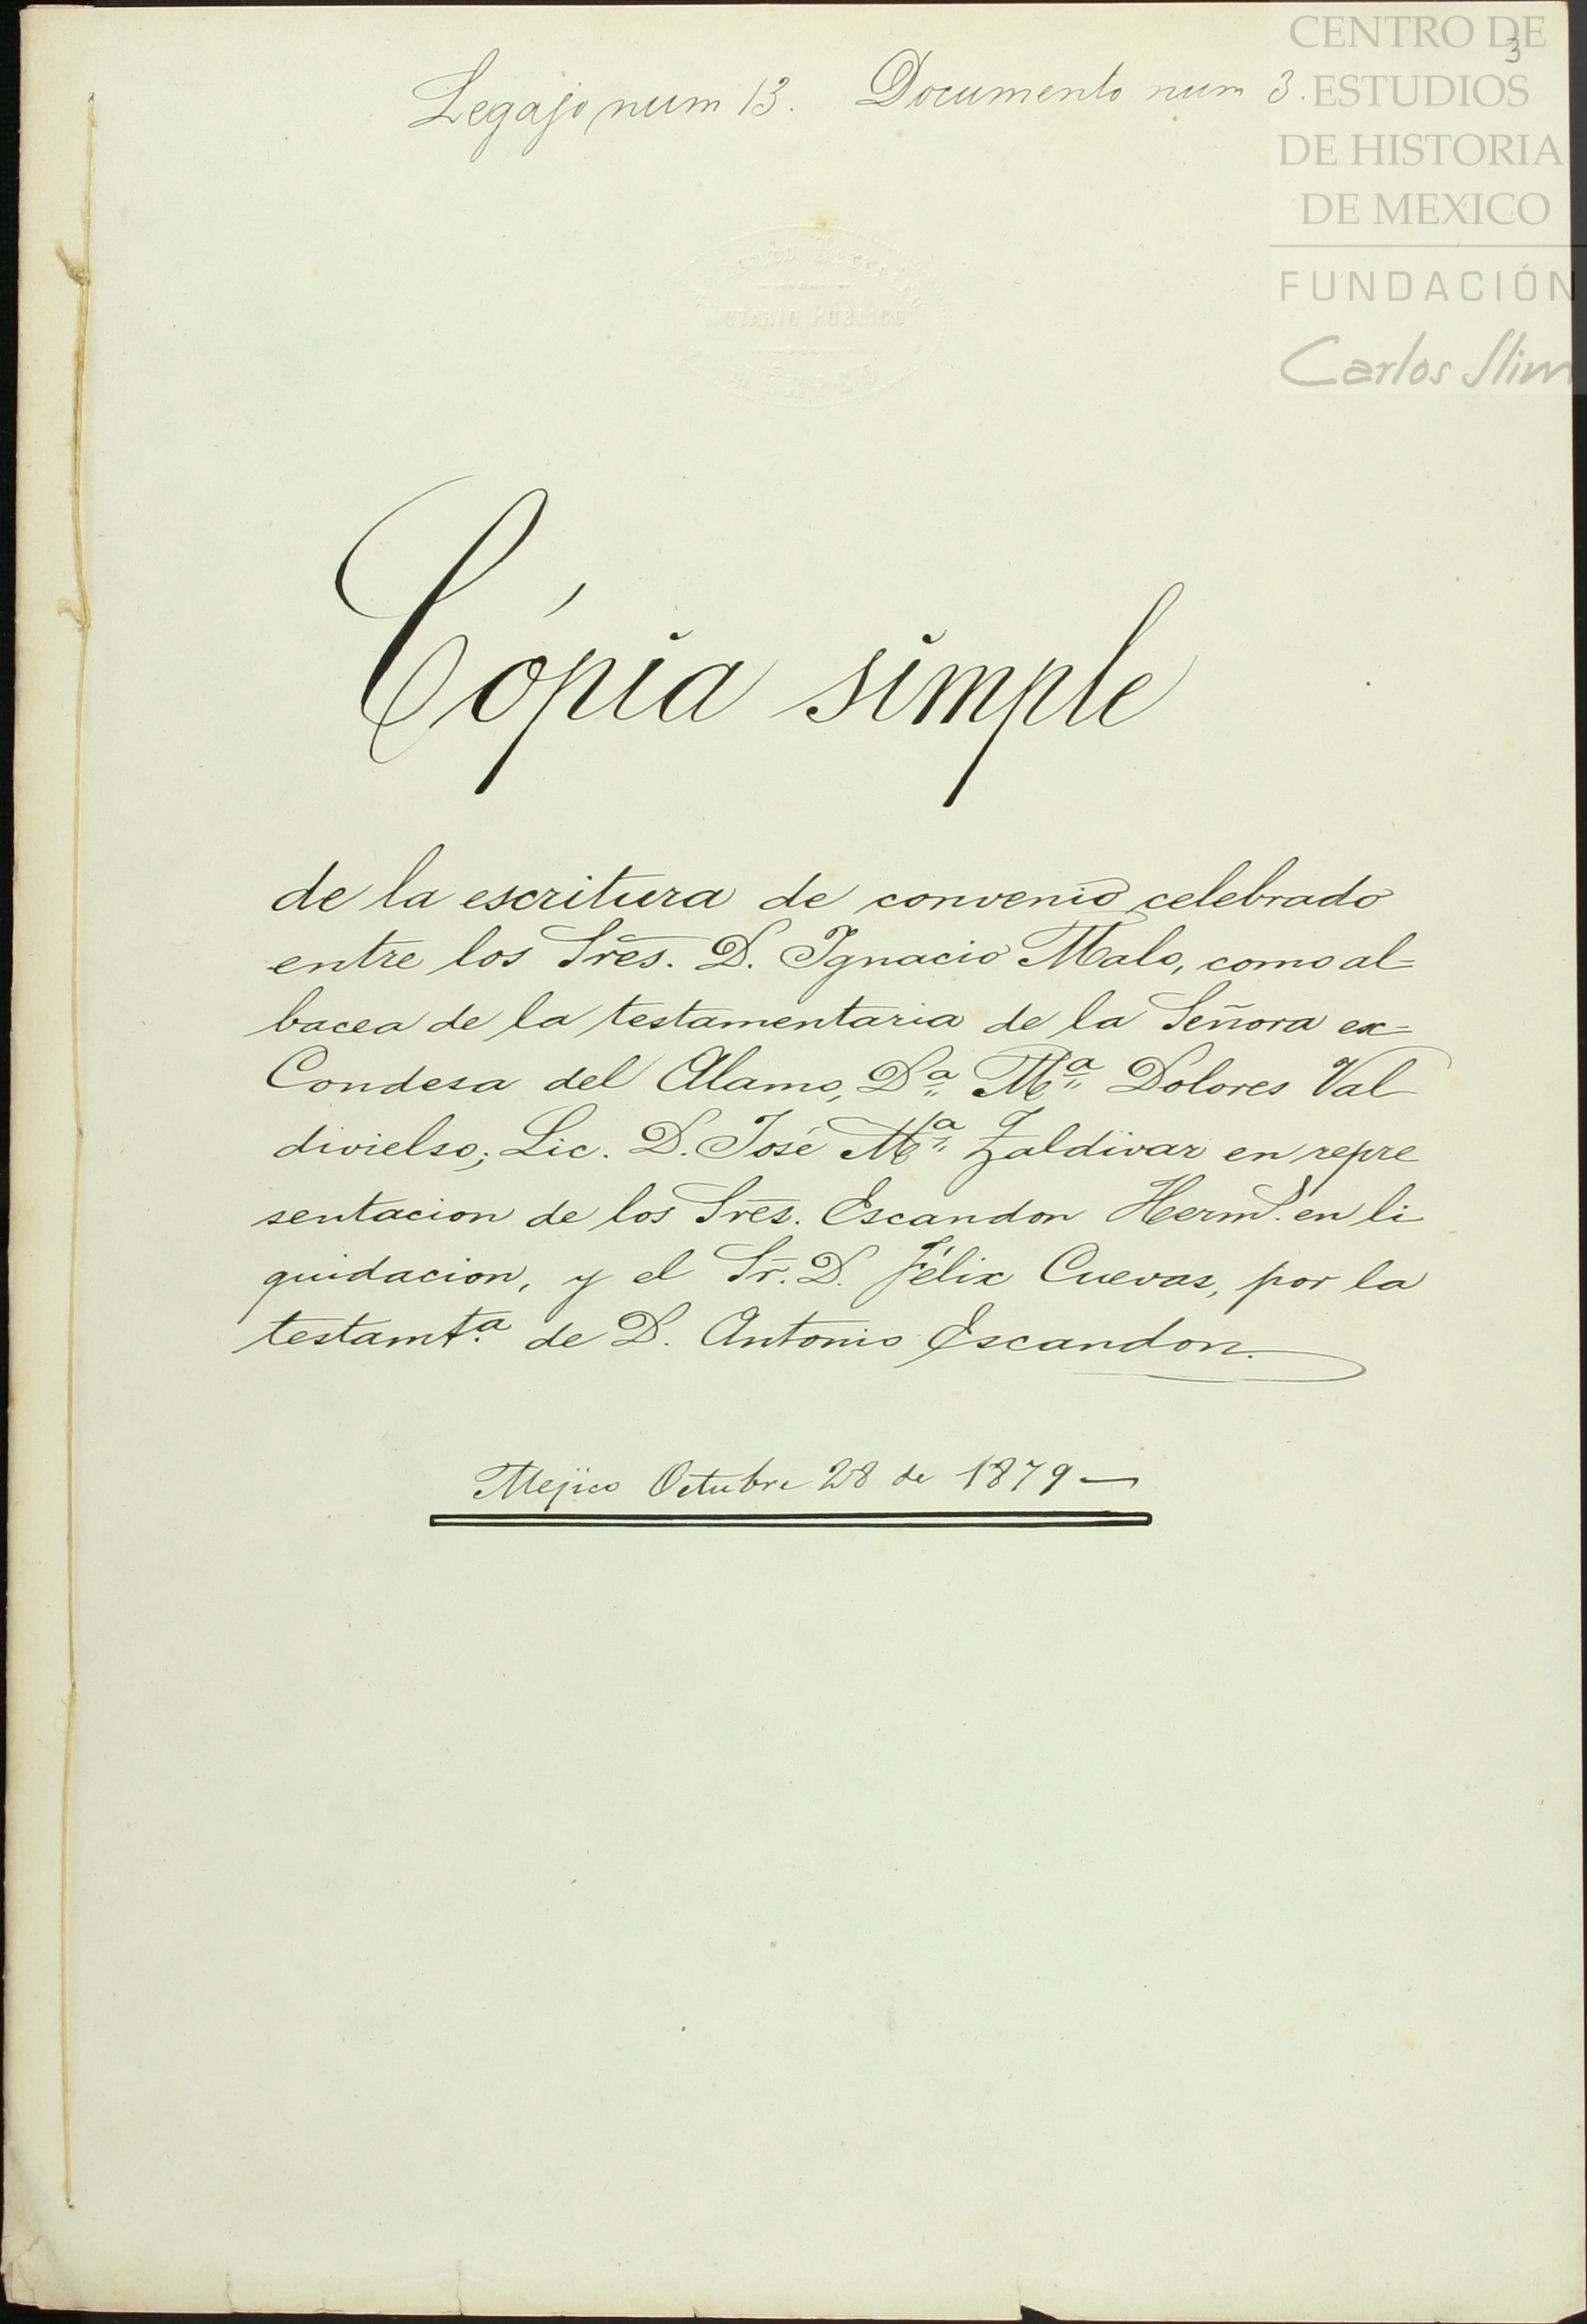 Legajo num 13. Documento num 3.
3
CENTRO DE
ESTUDIOS
DE HISTORIA
DE MEXICO
FUNDACIÓN
Carlos Slim
NOTARIO PÚBLICO
Cópia simple
de la escritura de convenio celebrado
entre los Sres. D. Ignacio Malo, como al=
bacea de la testamentaria de la Señora ex=
Condesa del Alamo, Dª Mª Dolores Val
divielso; Lic. D. José Mª Zaldivar en repre
sentacion de los Sres. Escandon Herms. en li
quidacion, y el Sr. D. Félix Cuevas, por la
testamtª de D. Antonio Escandon.
Mejico Octubre 28 de 1879—